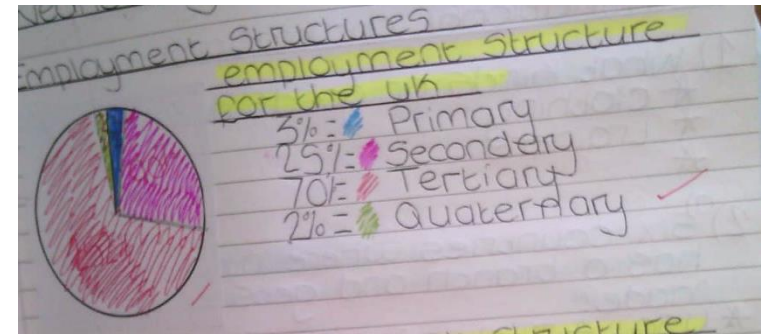 Employment Structures
employment structure
for the UK
3% = Primary
25% = Secondery
70% = Tertiary
2% = Quaternary
structure